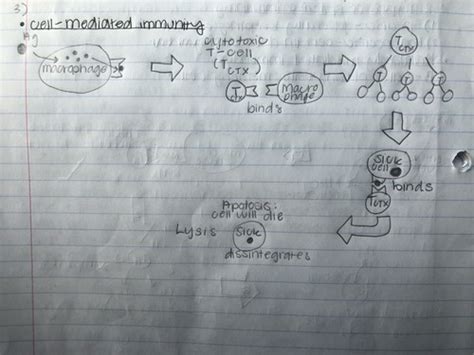 3)
• cell-mediated immunity
Ag
macrophage
cytotoxic
T-cell
(TCTX)
TCTX
macro
phage
binds
TCTX
T
T
T
Sick
cell
binds
TCTX
Apotosis:
cell will die
Lysis
Sick
dissintegrates